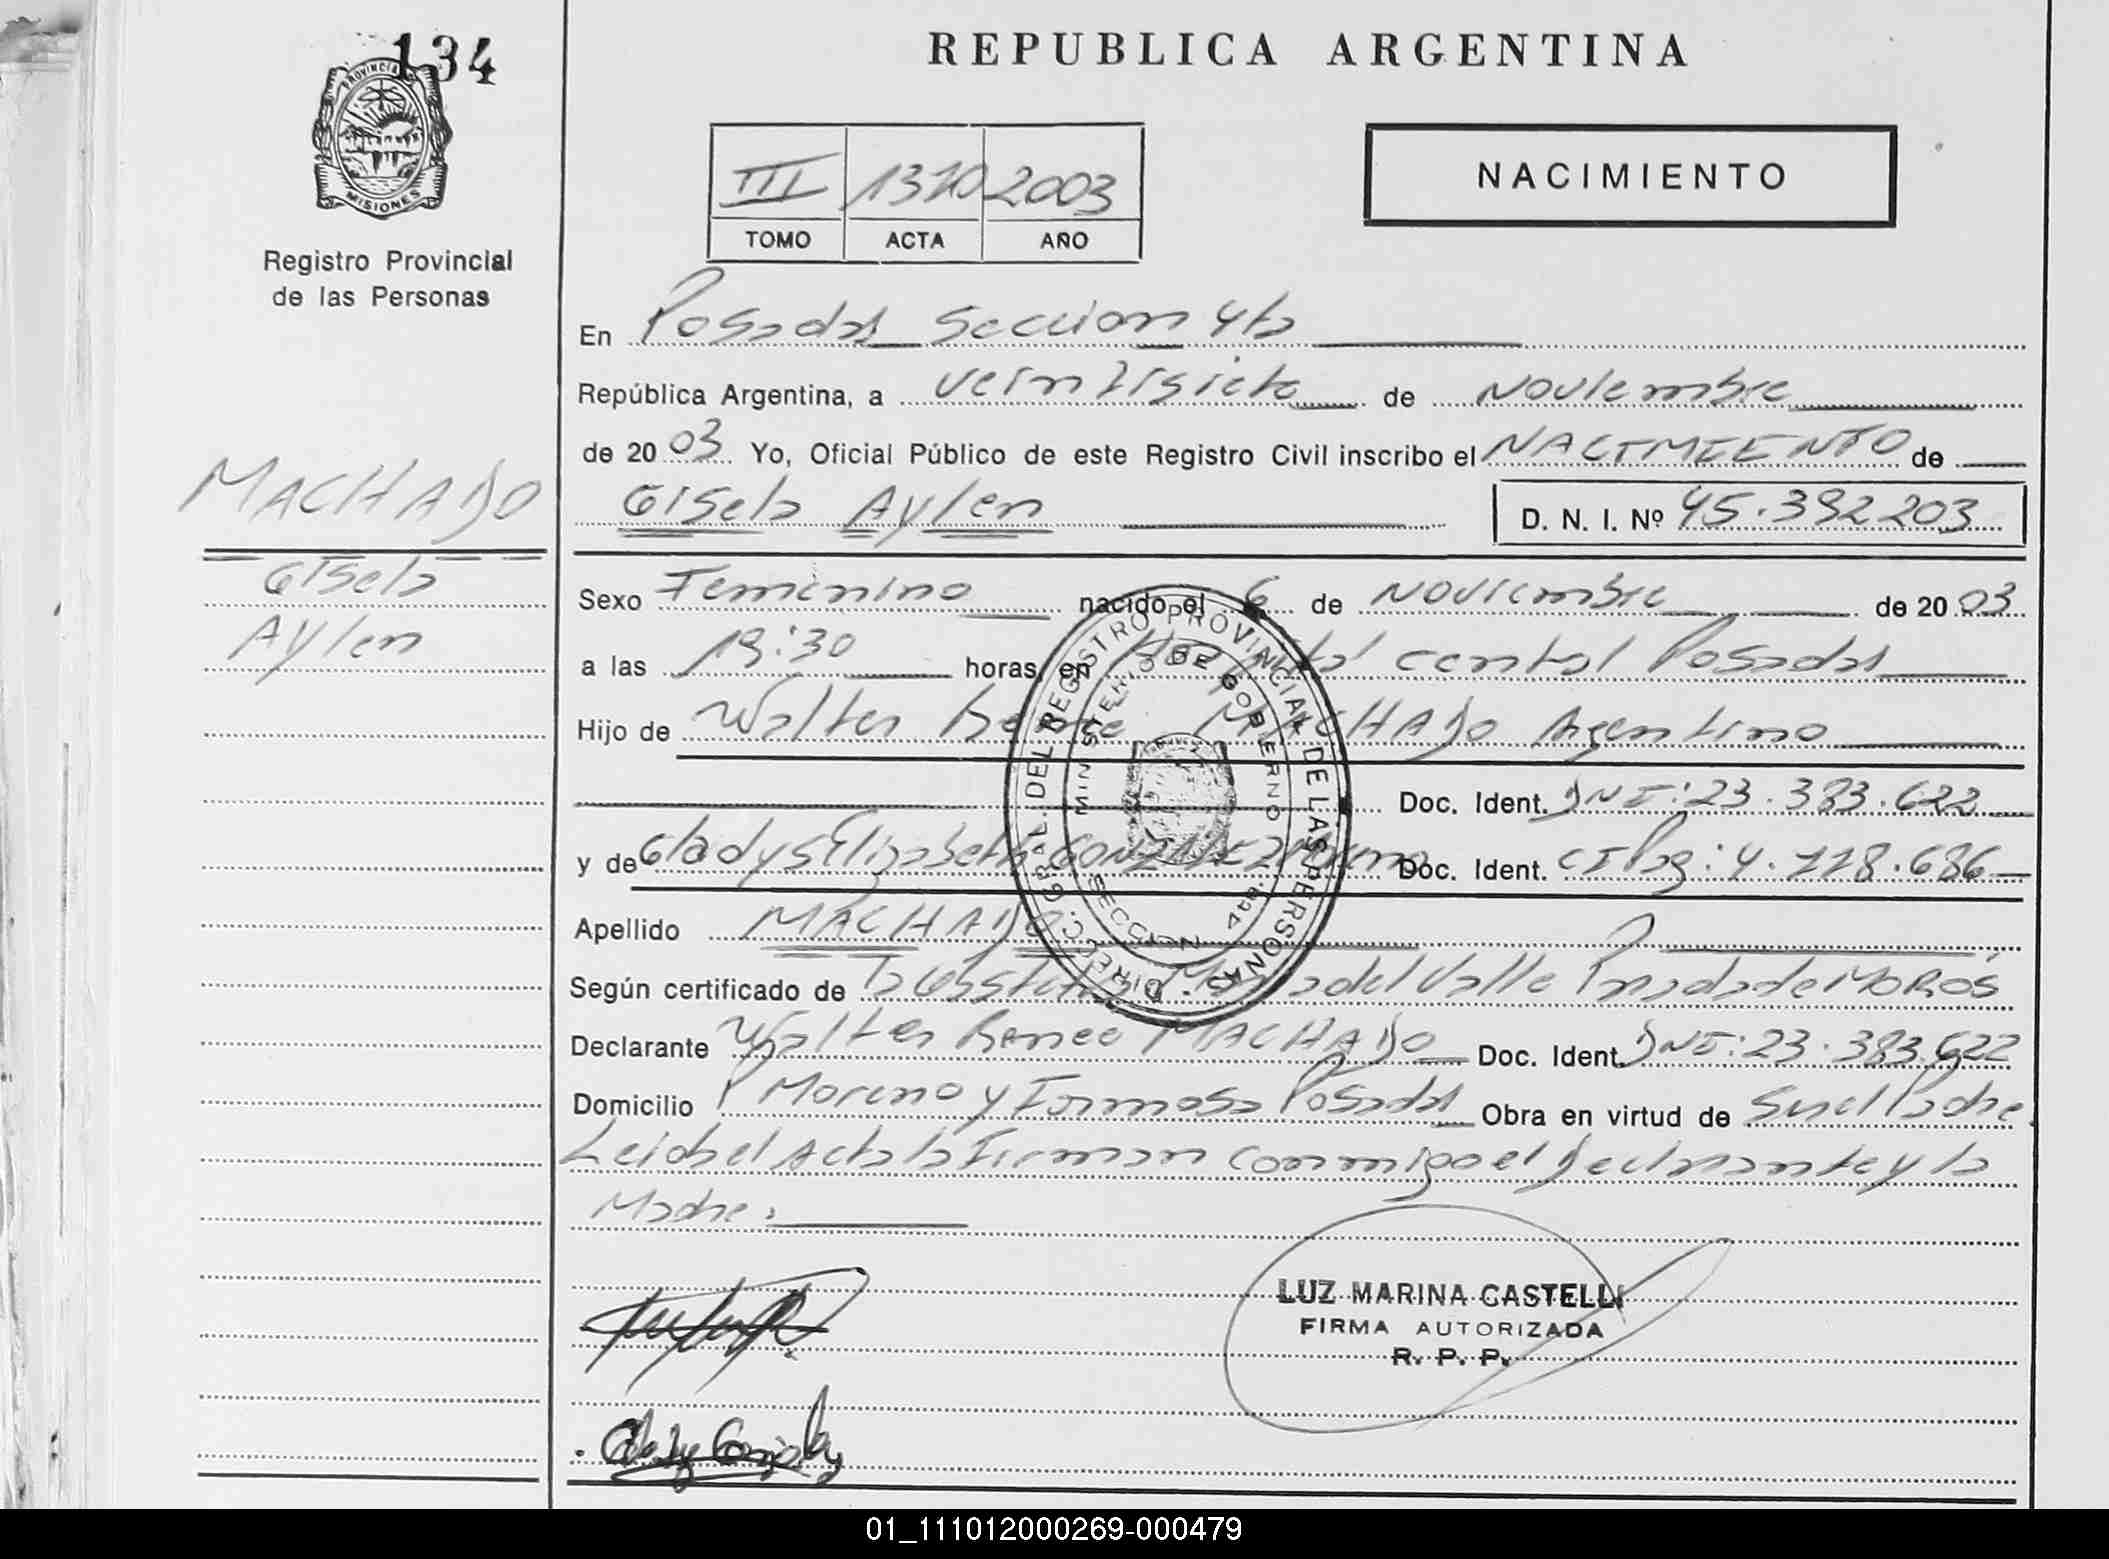 134
PROVINCIA
MISIONES
Registro Provincial
de las Personas
REPUBLICA ARGENTINA
III 1320 2003
TOMO ACTA AÑO
NACIMIENTO
En Posadas Seccion 4ta
República Argentina, a veintisiete de Noviembre
de 2003 Yo, Oficial Público de este Registro Civil inscribo el NACIMIENTO de
Gisela Aylen D. N. I. Nº 45.392203
MACHADO
Gisela
Aylen
Sexo Femenino nacido el 6 de Noviembre de 2003
a las 19:30 horas, en Hospital central Posadas
Hijo de Walter MACHADO Argentino
Doc. Ident. DNI: 23.383.622
y de Gladys Elizabeth GONZALEZ Doc. Ident. CI Pag: 4.128.686
Apellido MACHADO
Según certificado de la Obstetra del Valle de MOROS
Declarante Walter Renee MACHADO Doc. Ident. DNI: 23.383.622
Domicilio Moreno y Formosa Posadas Obra en virtud de Ser el Padre
Leida el Acta la Firman conmigo el Declarante y la
Madre.
DIRECC. GRAL. DEL REGISTRO PROVINCIAL DE LAS PERSONAS
MINISTERIO DE GOBIERNO
SECCION 4ta.
LUZ MARINA CASTELLI
FIRMA AUTORIZADA
R. P. P.
01_111012000269-000479